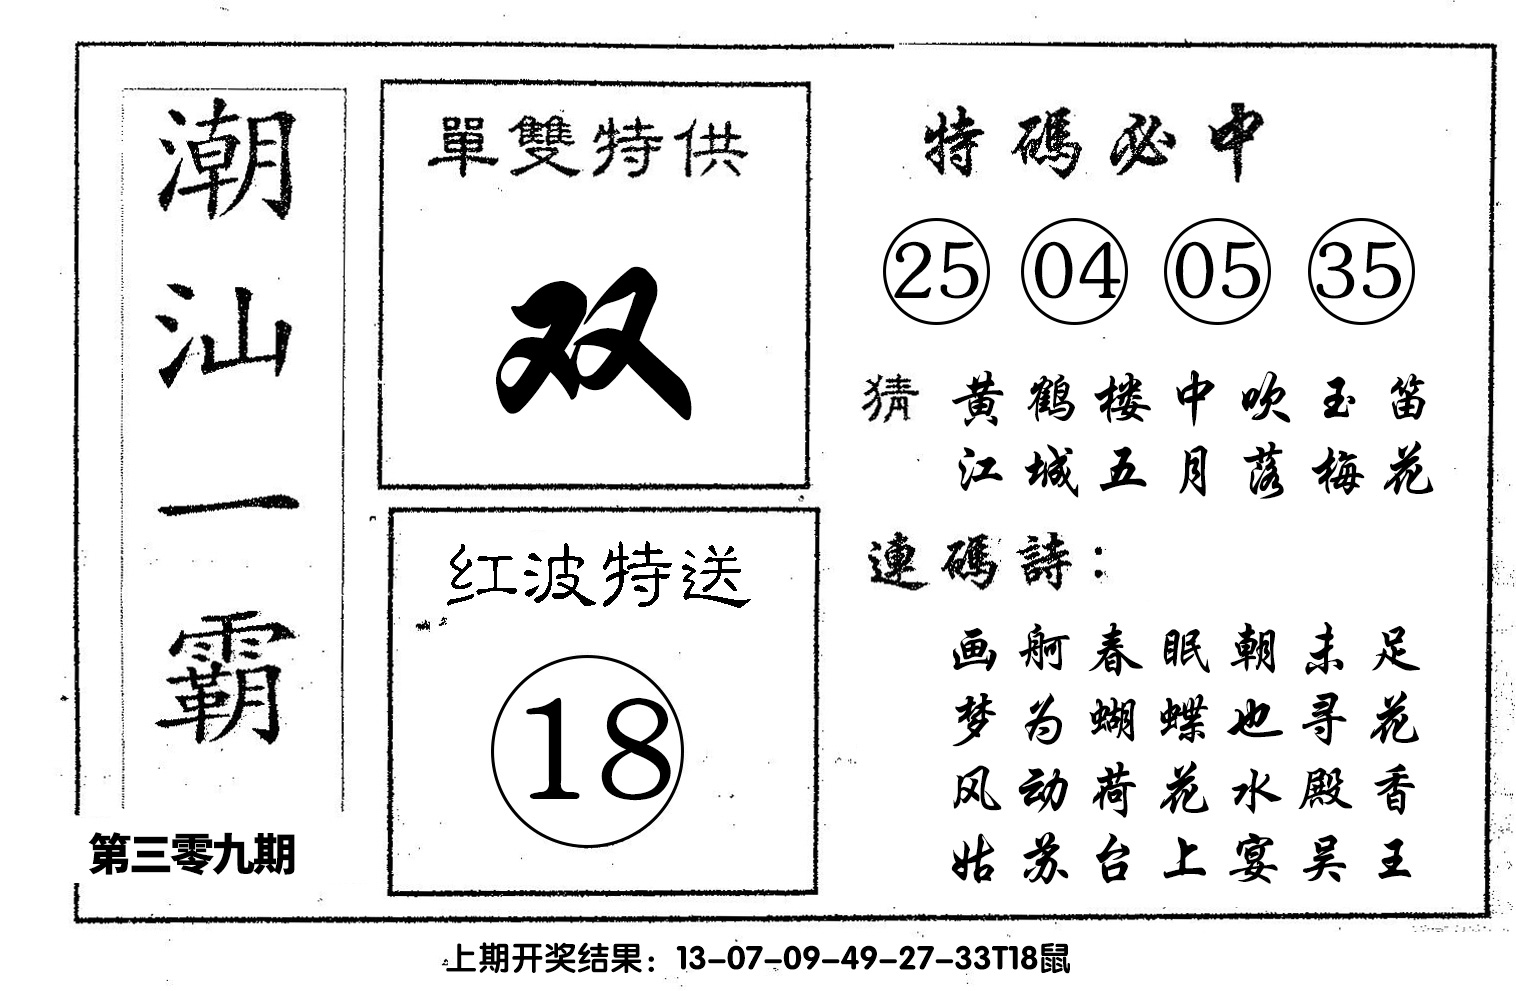 潮汕一霸
第三零九期
單雙特供
双
红波特送
18
特碼必中
25 04 05 35
猜 黄鹤楼中吹玉笛
江城五月落梅花
連碼詩：
画舸春眠朝未足
梦为蝴蝶也寻花
风动荷花水殿香
姑苏台上宴吴王
上期开奖结果：13-07-09-49-27-33T18鼠